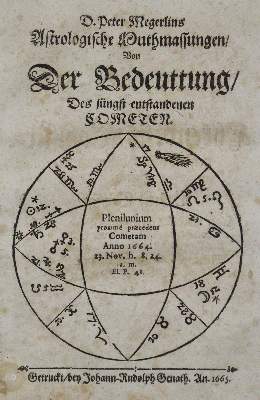 D. Peter Megerlins
Astrologische Muthmassungen/
Von
Der Bedeuttung/
Des jüngst entstandenen
COMETEN.
Plenilunium
proximé præcedens
Cometam
Anno 1664.
23. Nov. h. 8. 24.
El. P. 48.
Getruckt/bey Johann-Rudolph Genath. An. 1665.